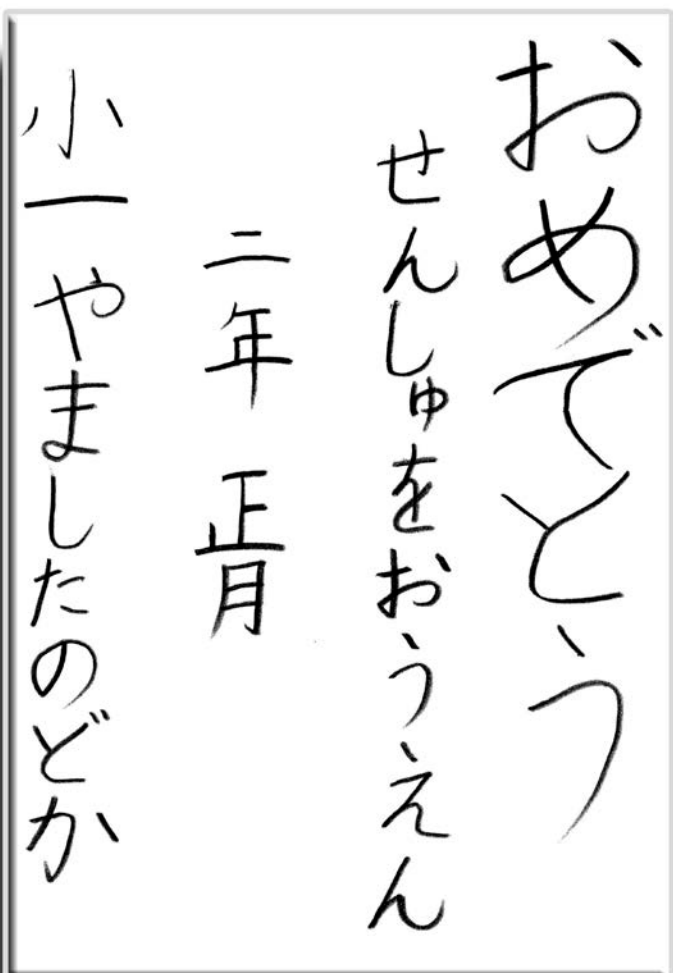 おめでとう
せんしゅをおうえん
二年 正月
小一 やましたのどか